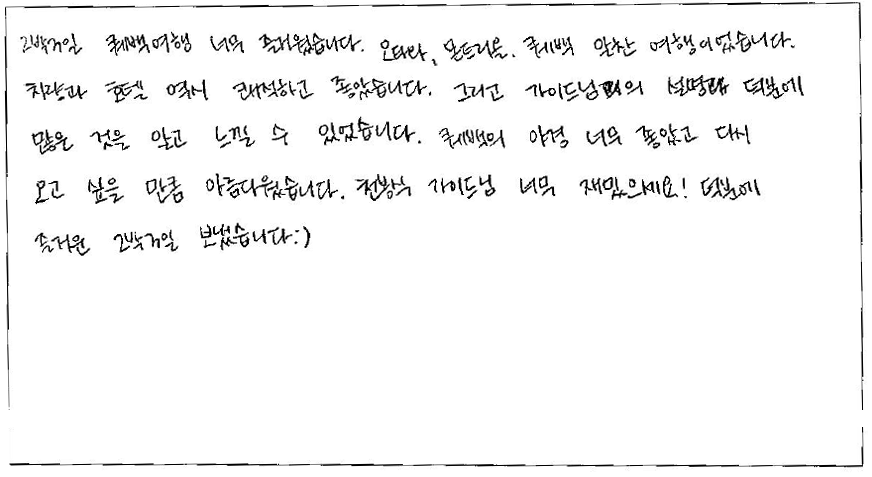 2박3일 퀘백여행 너무 즐거웠습니다. 오타와, 몬트리올. 퀘백 알찬 여행이었습니다.
차량과 호텔 역시 쾌적하고 좋았습니다. 그리고 가이드님의 설명 덕분에
많은 것을 알고 느낄 수 있었습니다. 퀘백의 야경 너무 좋았고 다시
오고 싶을 만큼 아름다웠습니다. 천봉식 가이드님 너무 재밌으세요! 덕분에
즐거운 2박3일 보냈습니다:)